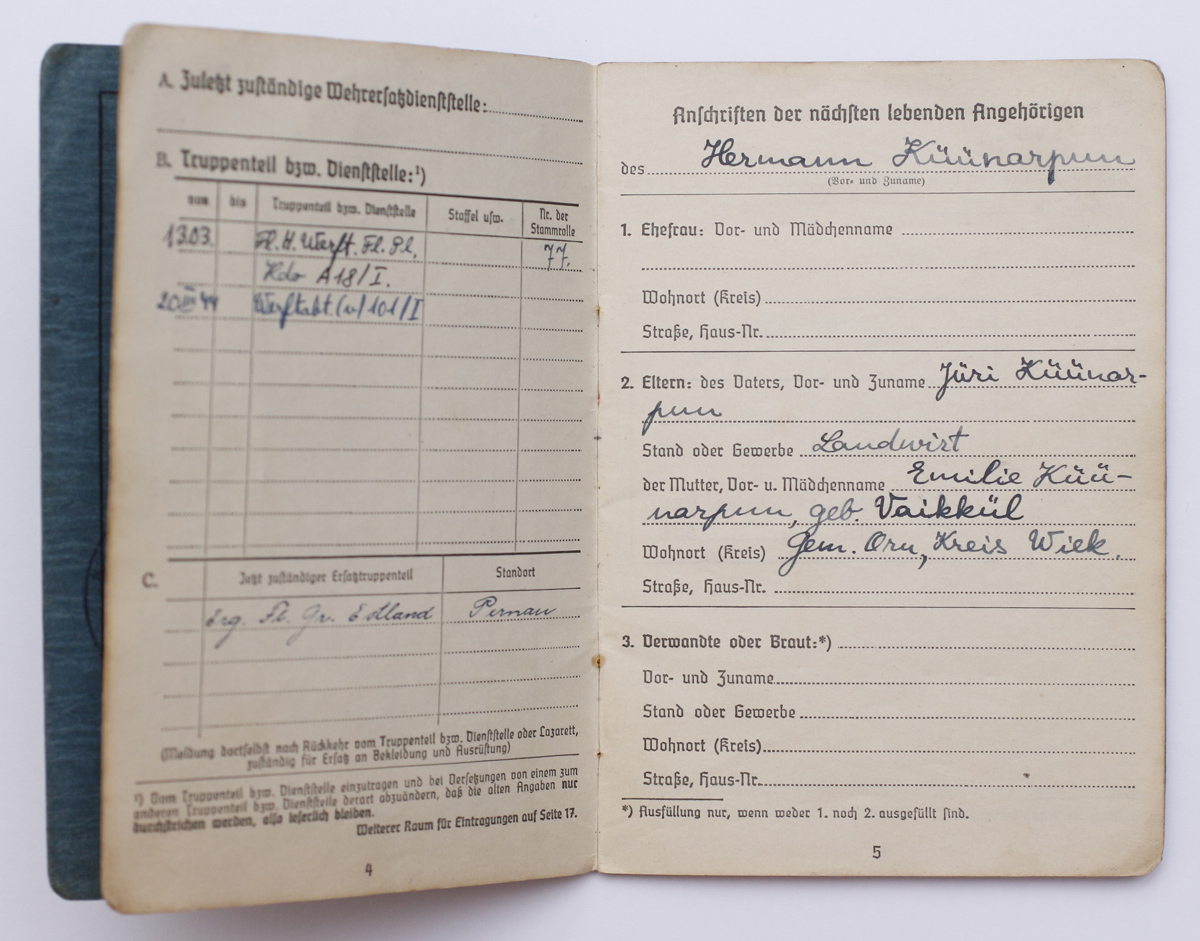 A. Zuletzt zuständige Wehrersatzdienststelle:
B. Truppenteil bzw. Dienststelle:¹)
von bis Truppenteil bzw. Dienststelle Staffel usw. Nr. der Stammrolle
13.03. Fl. H. Werft. Fl. Pl. 77.
Kdo A 18/I.
20 III 44 Werftabt. (v) 101/I
C. Jetzt zuständiger Ersatztruppenteil Standort
Erg. Fl. Gr. Estland Pernau
(Meldung dortselbst nach Rückkehr vom Truppenteil bzw. Dienststelle oder Lazarett,
zuständig für Ersatz an Bekleidung und Ausrüstung)
¹) Vom Truppenteil bzw. Dienststelle einzutragen und bei Versetzungen von einem zum
anderen Truppenteil bzw. Dienststelle derart abzuändern, daß die alten Angaben nur
durchstrichen werden, also leserlich bleiben.
Weiterer Raum für Eintragungen auf Seite 17.
4
Anschriften der nächsten lebenden Angehörigen
des Hermann Küünarpuu
(Vor- und Zuname)
1. Ehefrau: Vor- und Mädchenname
Wohnort (Kreis)
Straße, Haus-Nr.
2. Eltern: des Vaters, Vor- und Zuname Jüri Küünar-
puu
Stand oder Gewerbe Landwirt
der Mutter, Vor- u. Mädchenname Emilie Küü-
narpuu, geb. Vaikkül
Wohnort (Kreis) Gem. Oru, Kreis Wiek.
Straße, Haus-Nr.
3. Verwandte oder Braut:*)
Vor- und Zuname
Stand oder Gewerbe
Wohnort (Kreis)
Straße, Haus-Nr.
*) Ausfüllung nur, wenn weder 1. noch 2. ausgefüllt sind.
5